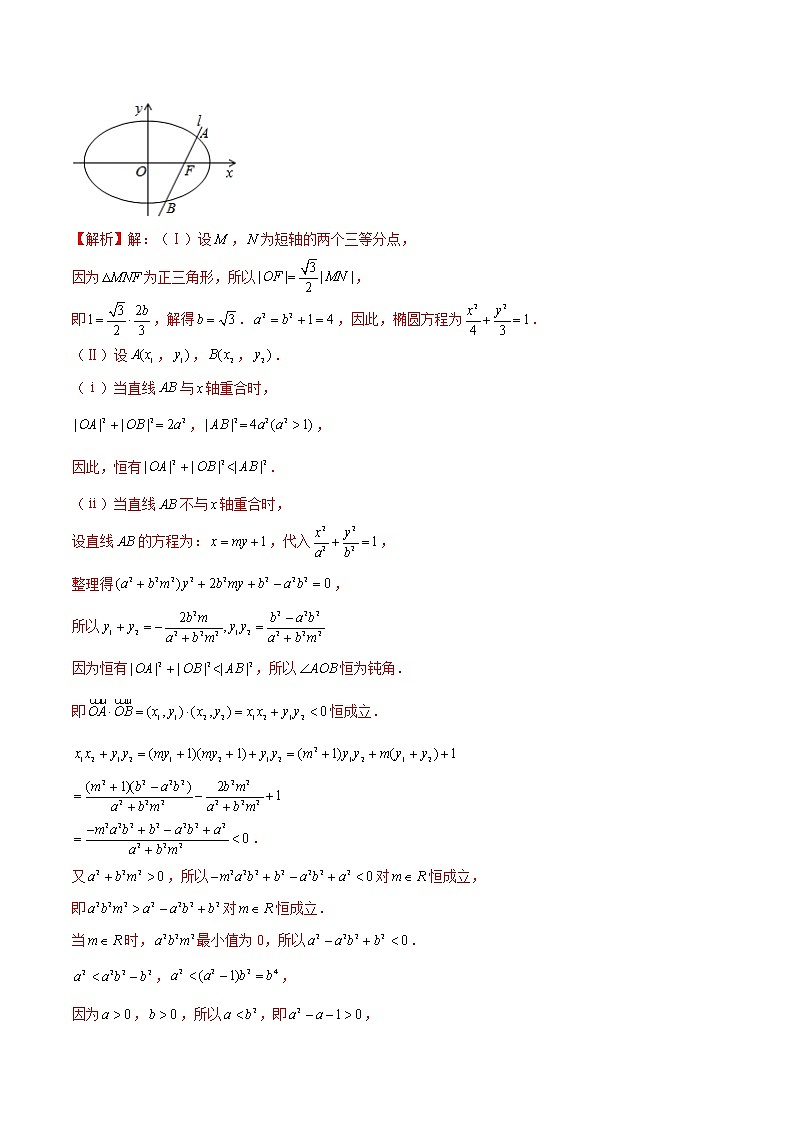 y
l
A
O
F
x
B
【解析】解：（Ⅰ）设M，N为短轴的两个三等分点，
因为△MNF为正三角形，所以|OF|=√3/2|MN|，
即1=√3/2·2b/3，解得b=√3．a²=b²+1=4，因此，椭圆方程为x²/4+y²/3=1．
（Ⅱ）设A(x₁，y₁)，B(x₂，y₂)．
（ⅰ）当直线AB与x轴重合时，
|OA|²+|OB|²=2a²，|AB|²=4a²(a²>1)，
因此，恒有|OA|²+|OB|²<|AB|²．
（ⅱ）当直线AB不与x轴重合时，
设直线AB的方程为：x=my+1，代入x²/a²+y²/b²=1，
整理得(a²+b²m²)y²+2b²my+b²-a²b²=0，
所以y₁+y₂=-2b²m/(a²+b²m²),y₁y₂=(b²-a²b²)/(a²+b²m²)
因为恒有|OA|²+|OB|²<|AB|²，所以∠AOB恒为钝角．
即OA·OB=(x₁,y₁)·(x₂,y₂)=x₁x₂+y₁y₂<0恒成立．
x₁x₂+y₁y₂=(my₁+1)(my₂+1)+y₁y₂=(m²+1)y₁y₂+m(y₁+y₂)+1
=(m²+1)(b²-a²b²)/(a²+b²m²)-2b²m²/(a²+b²m²)+1
=(-m²a²b²+b²-a²b²+a²)/(a²+b²m²)<0．
又a²+b²m²>0，所以-m²a²b²+b²-a²b²+a²<0对m∈R恒成立，
即a²b²m²>a²-a²b²+b²对m∈R恒成立．
当m∈R时，a²b²m²最小值为0，所以a²-a²b²+b²<0．
a²<a²b²-b²，a²<(a²-1)b²=b⁴，
因为a>0，b>0，所以a<b²，即a²-a-1>0，